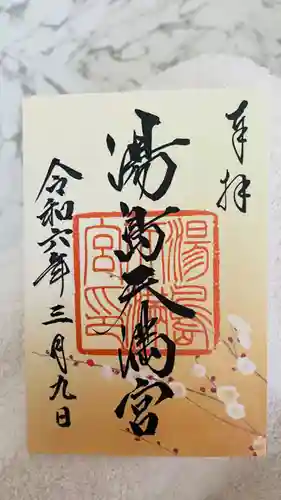 奉拝
湯島天満宮
湯島天満宮印
令和六年三月九日